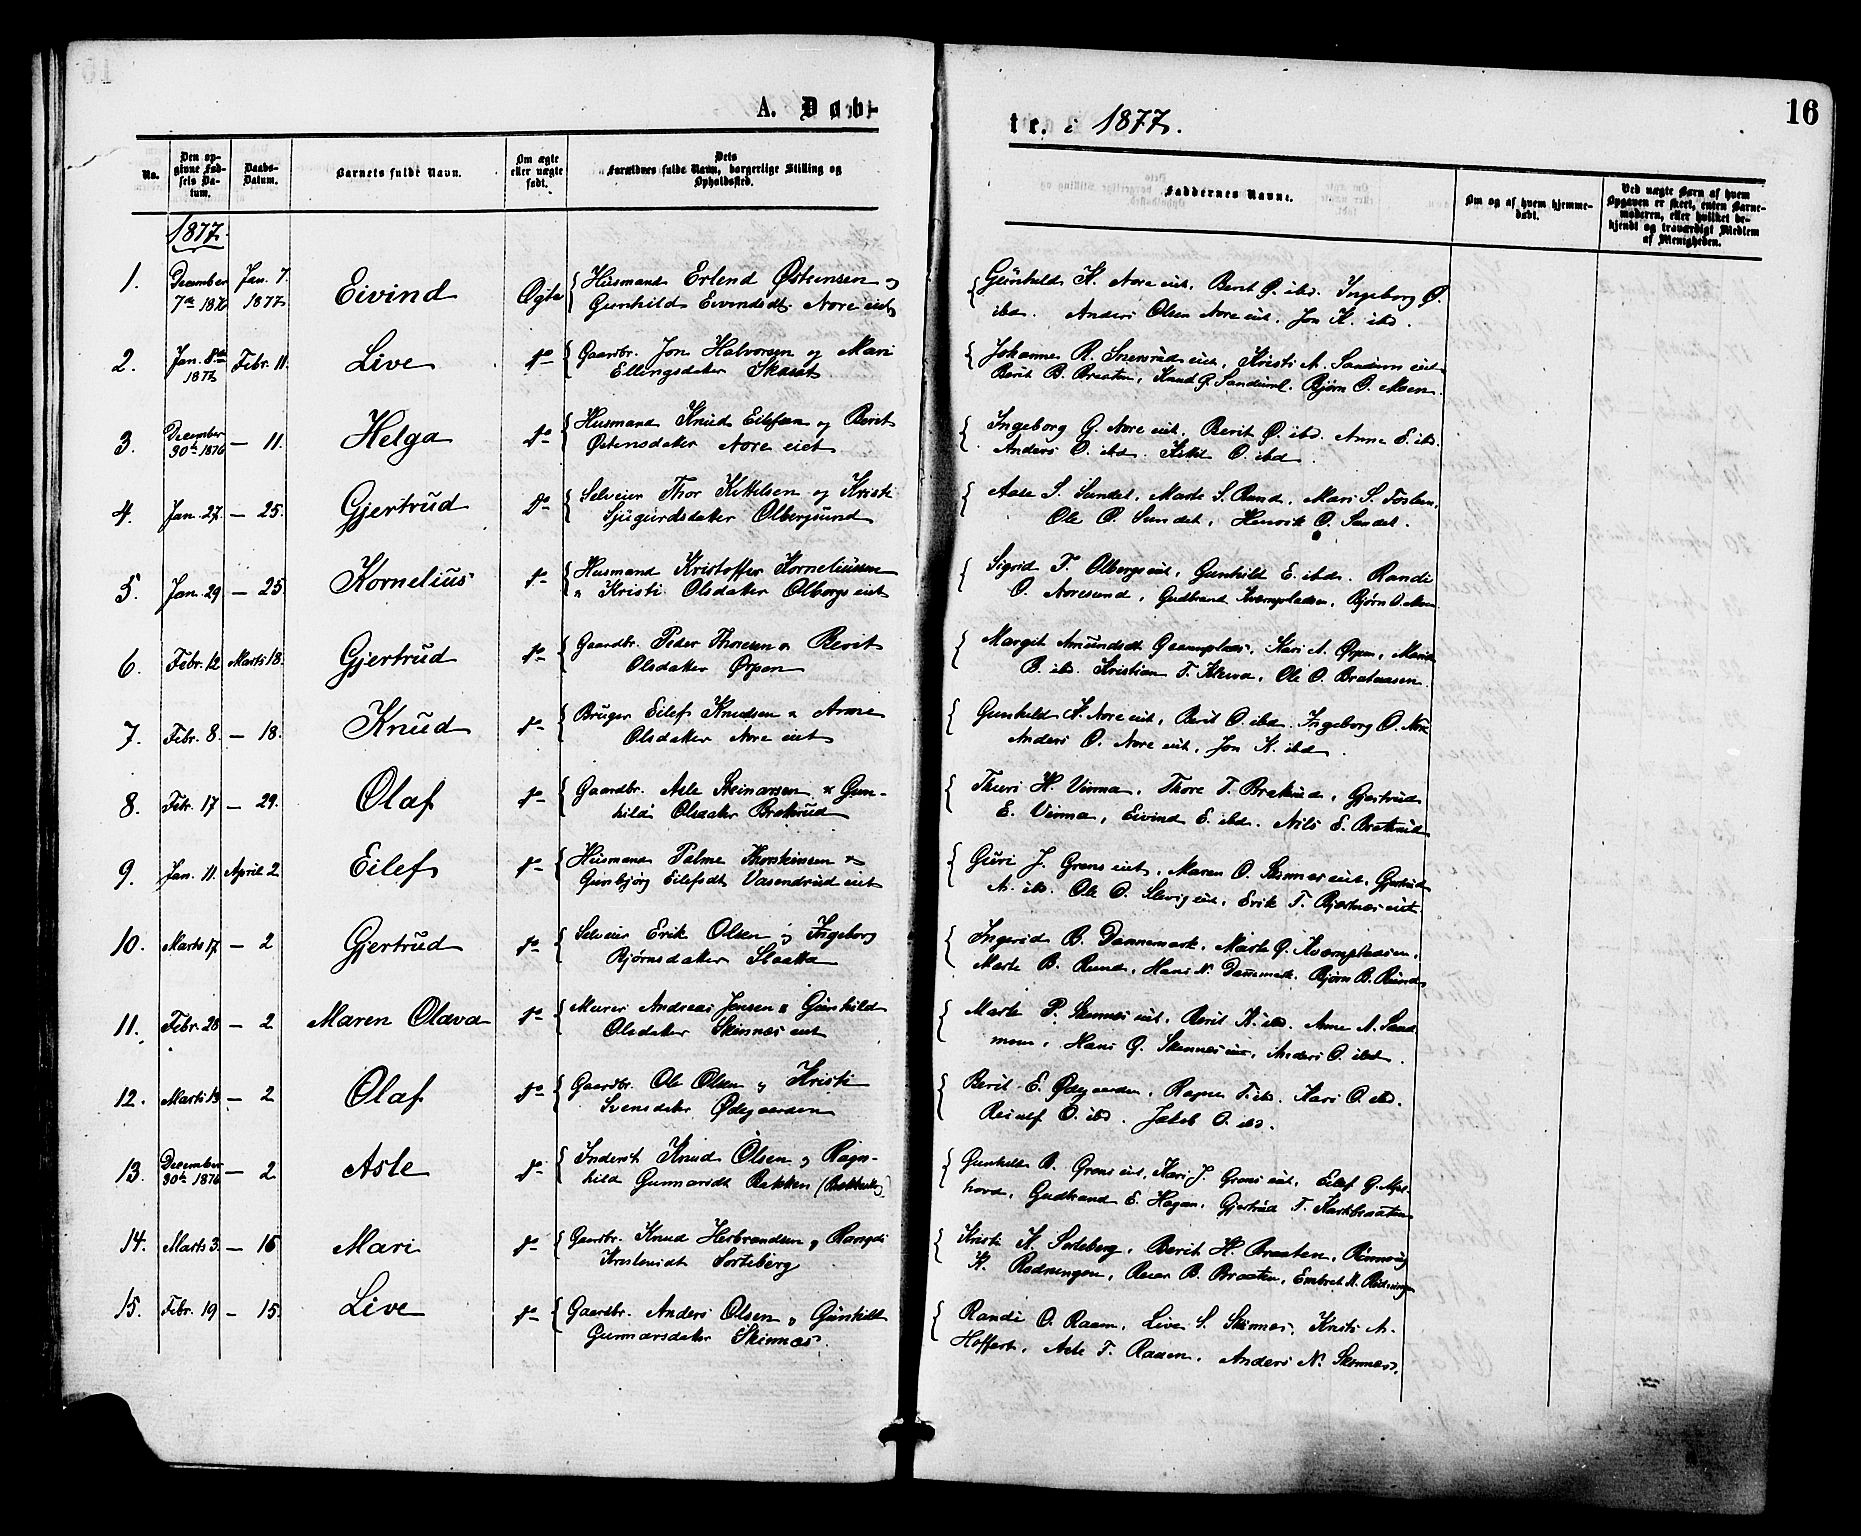 A. Døb-
te. i 1877.
16
No.
Den opgivne Fødsels Datum.
Daabs-Datum.
Barnets fulde Navn.
Om ægte eller uægte født.
Dets Forældres fulde Navn, borgerlige Stilling og Opholdssted.
Faddernes Navne.
Om og af hvem hjemmedøbt.
Ved uægte Børn af hvem Opgaven er skeet, enten Barnemoderen, eller hvilket bekjendt og troværdigt Medlem af Menigheden.
1877.
1. December 7de 1876 Jan. 7. 1877 Eivind Ægte Husmand Erlend Østensen og
Gunhild Eivindsdt. Nore eiet
Gunhild K. Nore eiet, Berit Ø. ibd. Ingeborg Ø.
ibd. Anders Olsen Nore eiet, Jon K. ibd.
2. Jan. 8de 1877 Febr. 11. Live do Gaardbr. Jon Halvorsen og Mari
Ellingsdatter Skaset
Johanne R. eiet, Kristi A. eiet
Berit B. Braaten, Knud G. Bjørn O. Moen
3. December 30te 1876 — 11. Helga do Husmand Knud Eilefsen og Berit
Østensdatter Nore eiet
Ingeborg G. Nore eiet, Berit Ø. ibd. Anne E. ibd.
Anders O. ibd. Kittil O. ibd.
4. Jan. 27. — 25. Gjertrud do Selveier Thor Kittelsen og Kristi
Sjugurdsdatter Olbergsund
Aase S. Sundet, Marte S. Rund, Mari S.
Ole O. Sundet, Henrik O. Sundet.
5. Jan. 29 — 25. Kornelius do Husmand Kristoffer Korneliussen
" Kristi Olsdatter Olbergs eiet
Sigrid T. Olbergs eiet, Gunhild E. ibd. Randi
O. Noresund, Gudbrand Kvernpladsen, Bjørn O. Moen
6. Febr. 12 Marts 18. Gjertrud do Gaardbr. Peder Thoresen " Berit
Olsdatter Ørpen
Margit Amundsdt. Kari A. Ørpen,
B. ibd. Kristian T. Kleiva, Ole O. Brataasen.
7. Febr. 8. — 18. Knud do Bruger Eilef Knudsen " Anne
Olsdatter Nore eiet
Gunhild K. Nore eiet, Berit O. ibd. Ingeborg O. Nore
Anders O. Nore eiet, Jon K. ibd.
8. Febr. 17 — 29. Olaf do Gaardbr. Asle Steinarsen " Gun-
hild Olsdatter Brekrud
Thuri H. Virma, Thore T. Brekrud, Gjertrud
E. Virma, Eivind E. ibd. Nils E. Brekrud
9. Jan. 11. April 2 Eilef do Husmand Palme Thorsteinsen "
Gunbjørg Eilefsdt. Vasendrud eiet
Guri J. Grøns eiet, Maren O. Skinnes eiet, Gjertrud
A. ibd. Ole O. eiet, Erik T. Bjertnes eiet.
10. Marts 17 — 2 Gjertrud do Selveier Erik Olsen og Ingeborg
Bjørnsdatter Slaatta
Ingerid B. Dannemark, Marte G. Kvernpladsen,
Marte B. Rund, Hans N. Dannemark, Bjørn B. Rund
11. Febr. 28 — 2 Maren Olava do Murer Andreas Jensen " Gunhild
Olsdatter Skinnæs eiet
Marte P. Skinnes eiet, Berit K. ibd. Anne A. Sand-
moen, Hans G. Skinnes eiet, Anders O. ibd.
12. Marts 13 — 2 Olaf do Gaardbr. Ole Olsen og Kristi
Svensdatter Ødegaarden
Berit E. Ødegaarden, Ragne T. ibd. Kari O. ibd.
O. ibd. Jakob O. ibd.
13. December 30te 1876 — 2 Asle do Inderst Knud Olsen og Ragn-
hild Gunnarsdt. Bakken
Gunhild B. Grøns eiet, Kari J. Grøns eiet, Eilef G.
Gudbrand E. Hagan, Gjertrud T.
14. Marts 3. — 15 Mari do Gaardbr. Knud Herbrandsen og Rangdi
Sorteberg
Kristi K. Sorteberg, Berit H. Braaten, Rønnaug
K. Rødningen, B. Braaten, Embret N. Rødningen
15. Febr. 19 — 15. Live do Gaardbr. Anders Olsen og Gunhild
Gunnarsdatter Skinnæs.
Randi O. Raaen, Live S. Skinnes, Kristi A.
Hoffart, Asle T. Raaen, Anders N. Skinnæs.